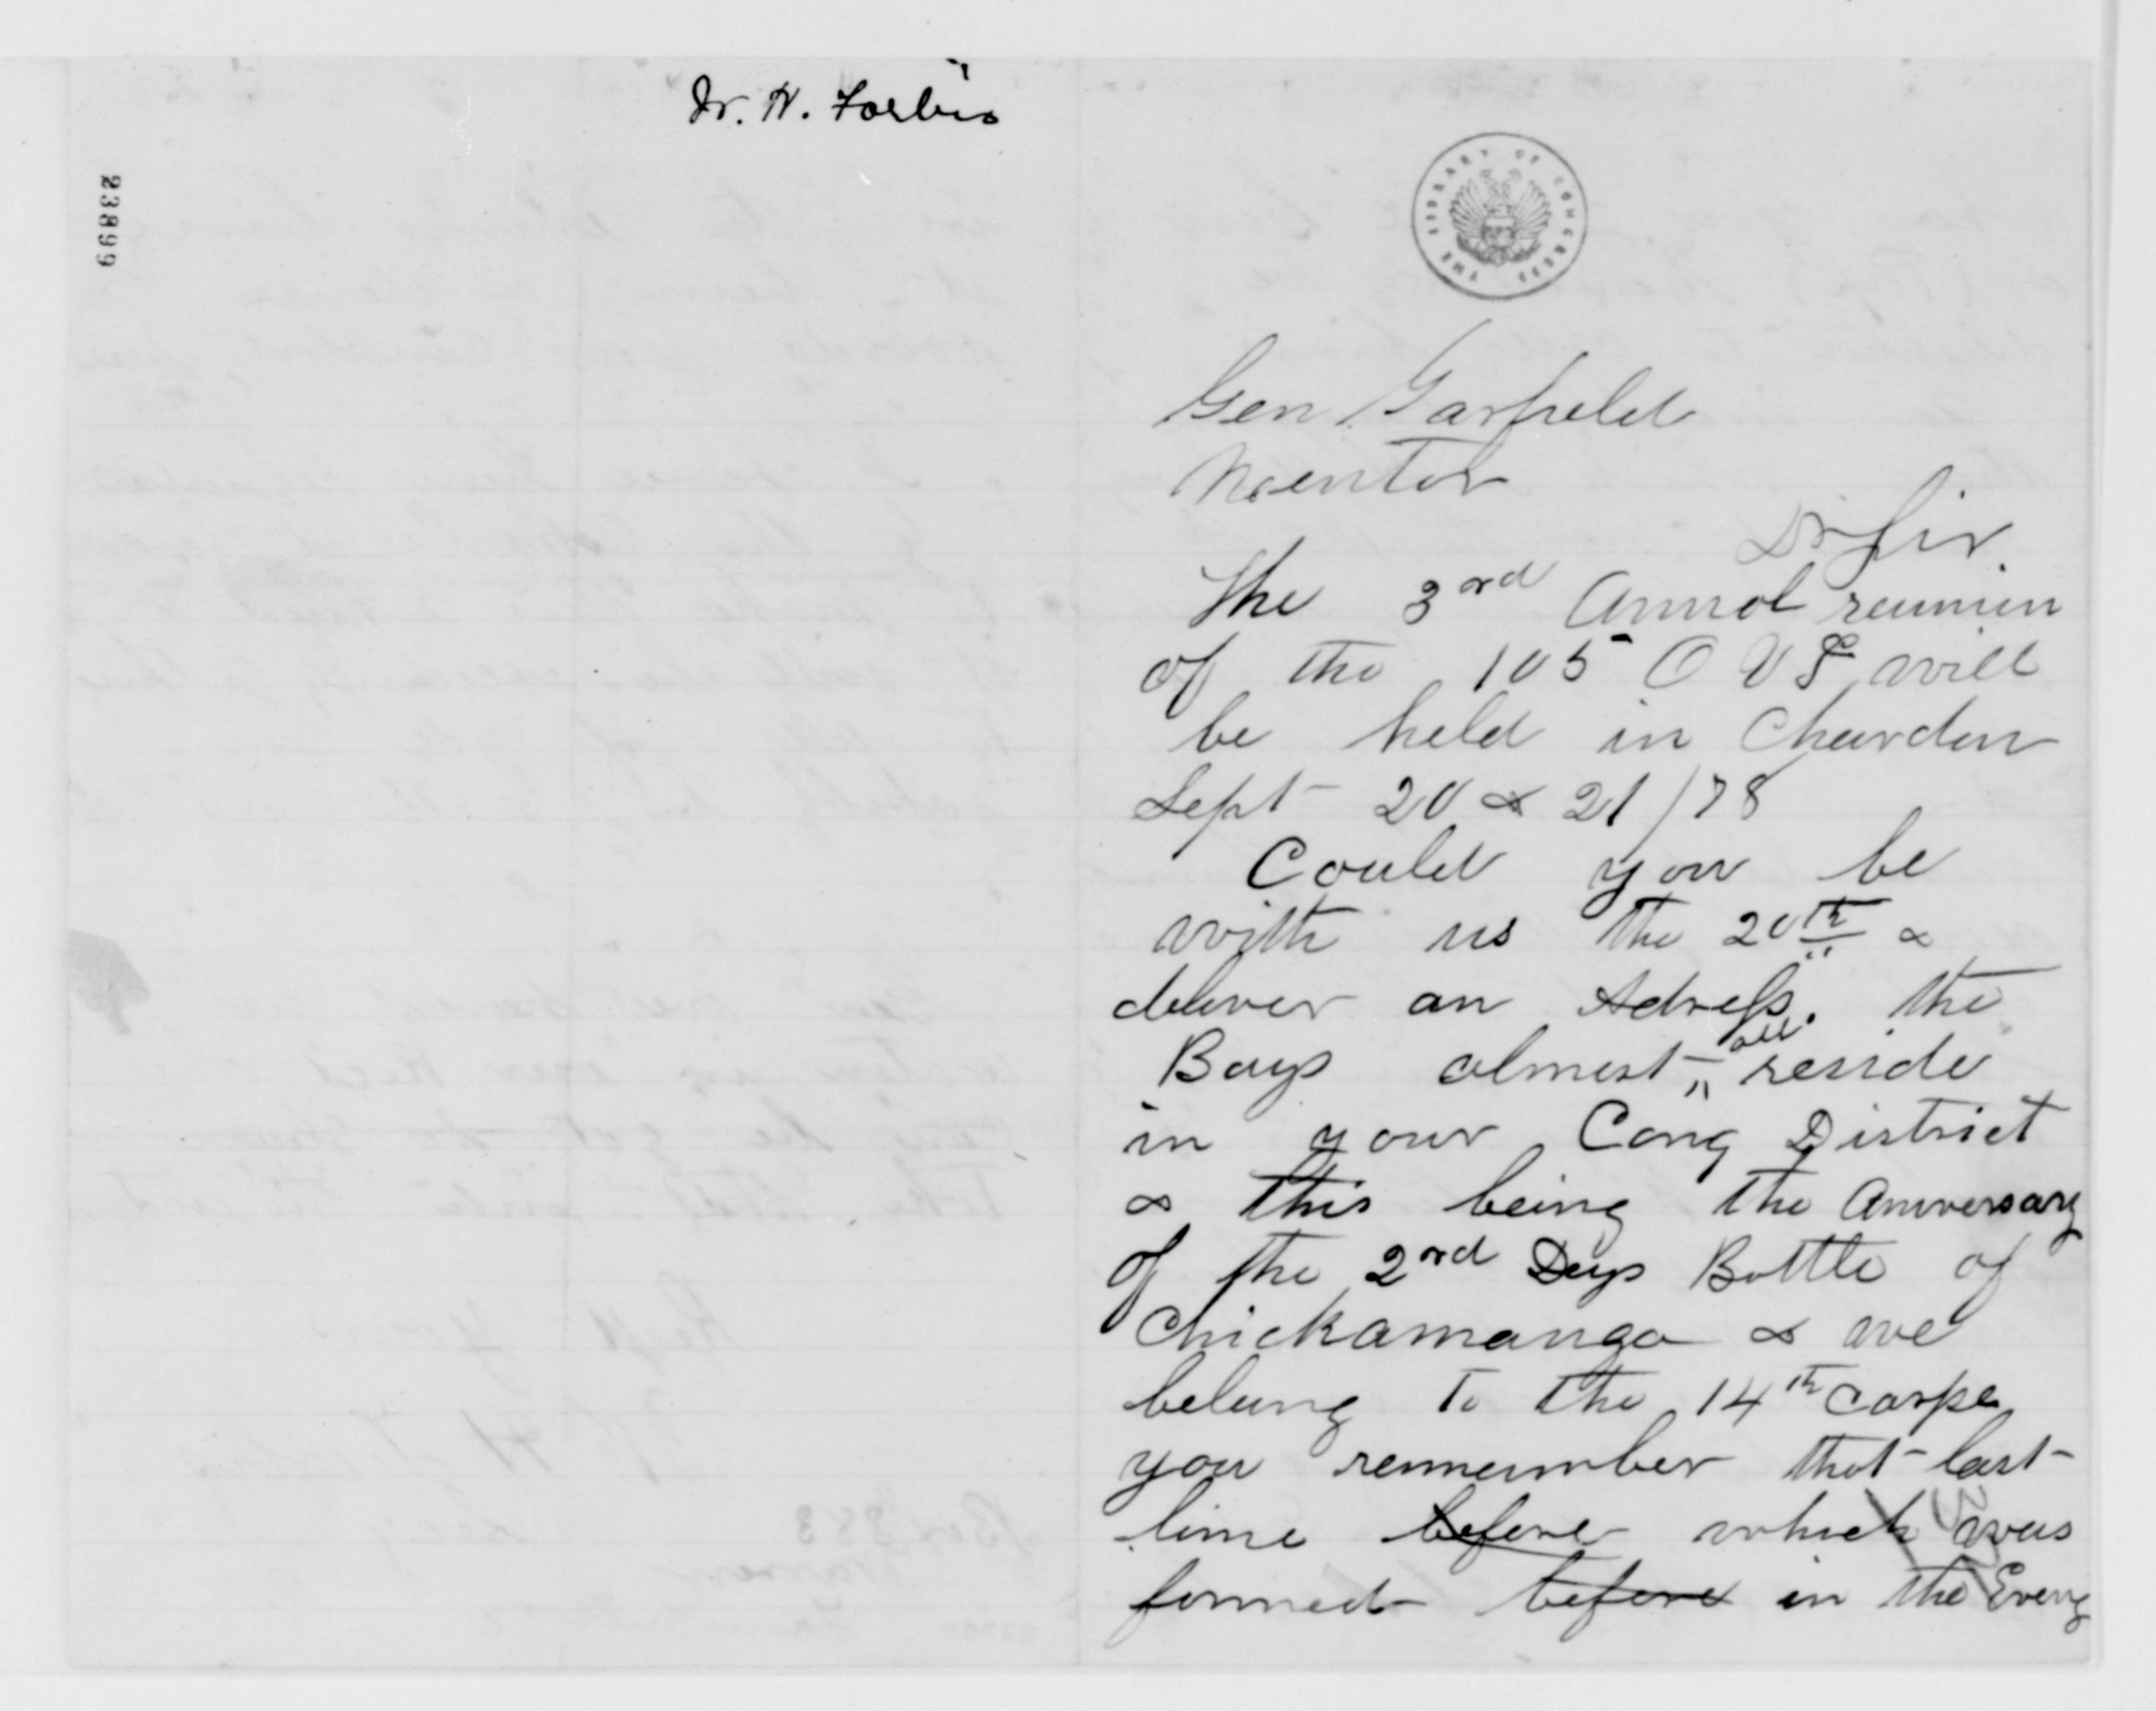 W. H. Forbis
23899
THE LIBRARY OF CONGRESS
Gen Garfield
Mentor
Dr Sir
The 3rd Annual reunion
of the 105 O V I will
be held in Chardon
Sept 20 & 21/78
Could you be
with us the 20th &
deliver an Adress. the
Boys almost all reside
in your Cong District
& this being the Aniversary
of the 2nd Days Battle of
Chickamauga & we
belong to the 14th Corps
you rememmber that last
line before which was
formed before in the Eveng